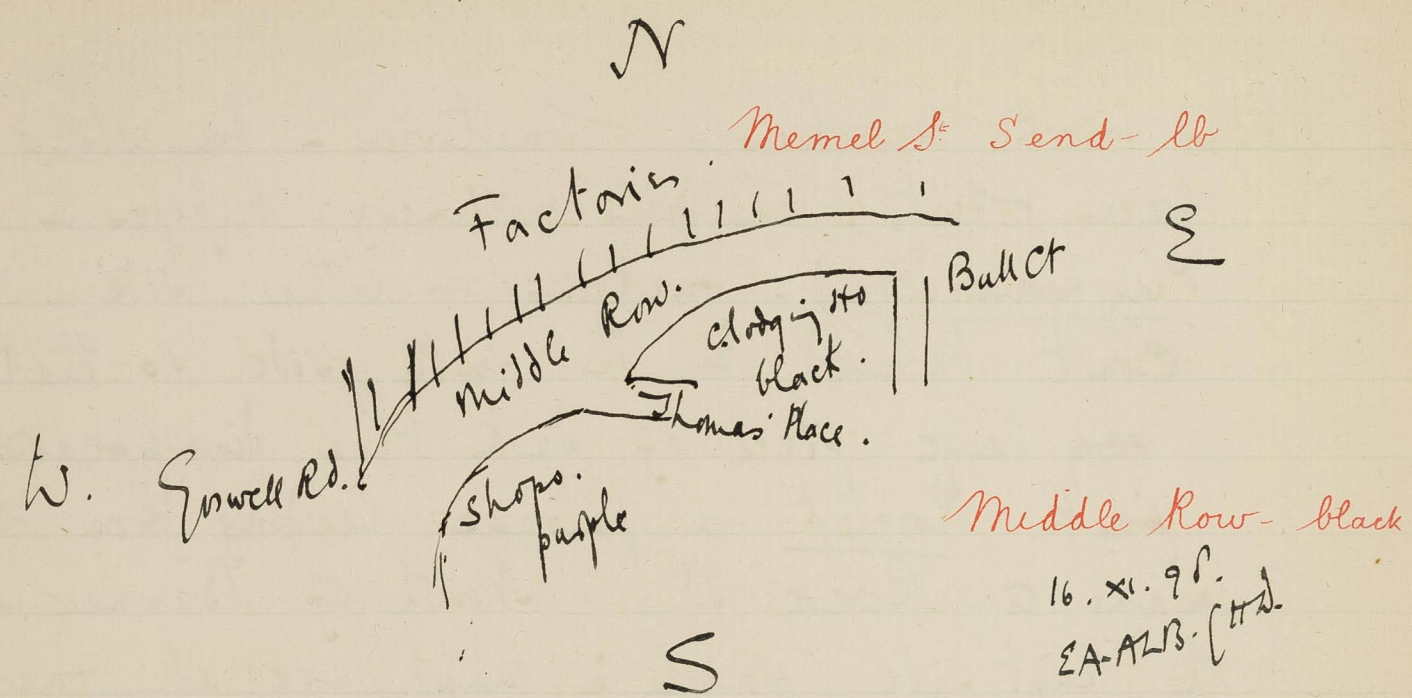 N
Memel St S end - lb
Factories
E
Bull Ct
Middle Row.
C. lodging Ho
black.
Thomas' Place.
W.
Goswell Rd.
shops.
purple
Middle Row - black
16. XI. 98.
S